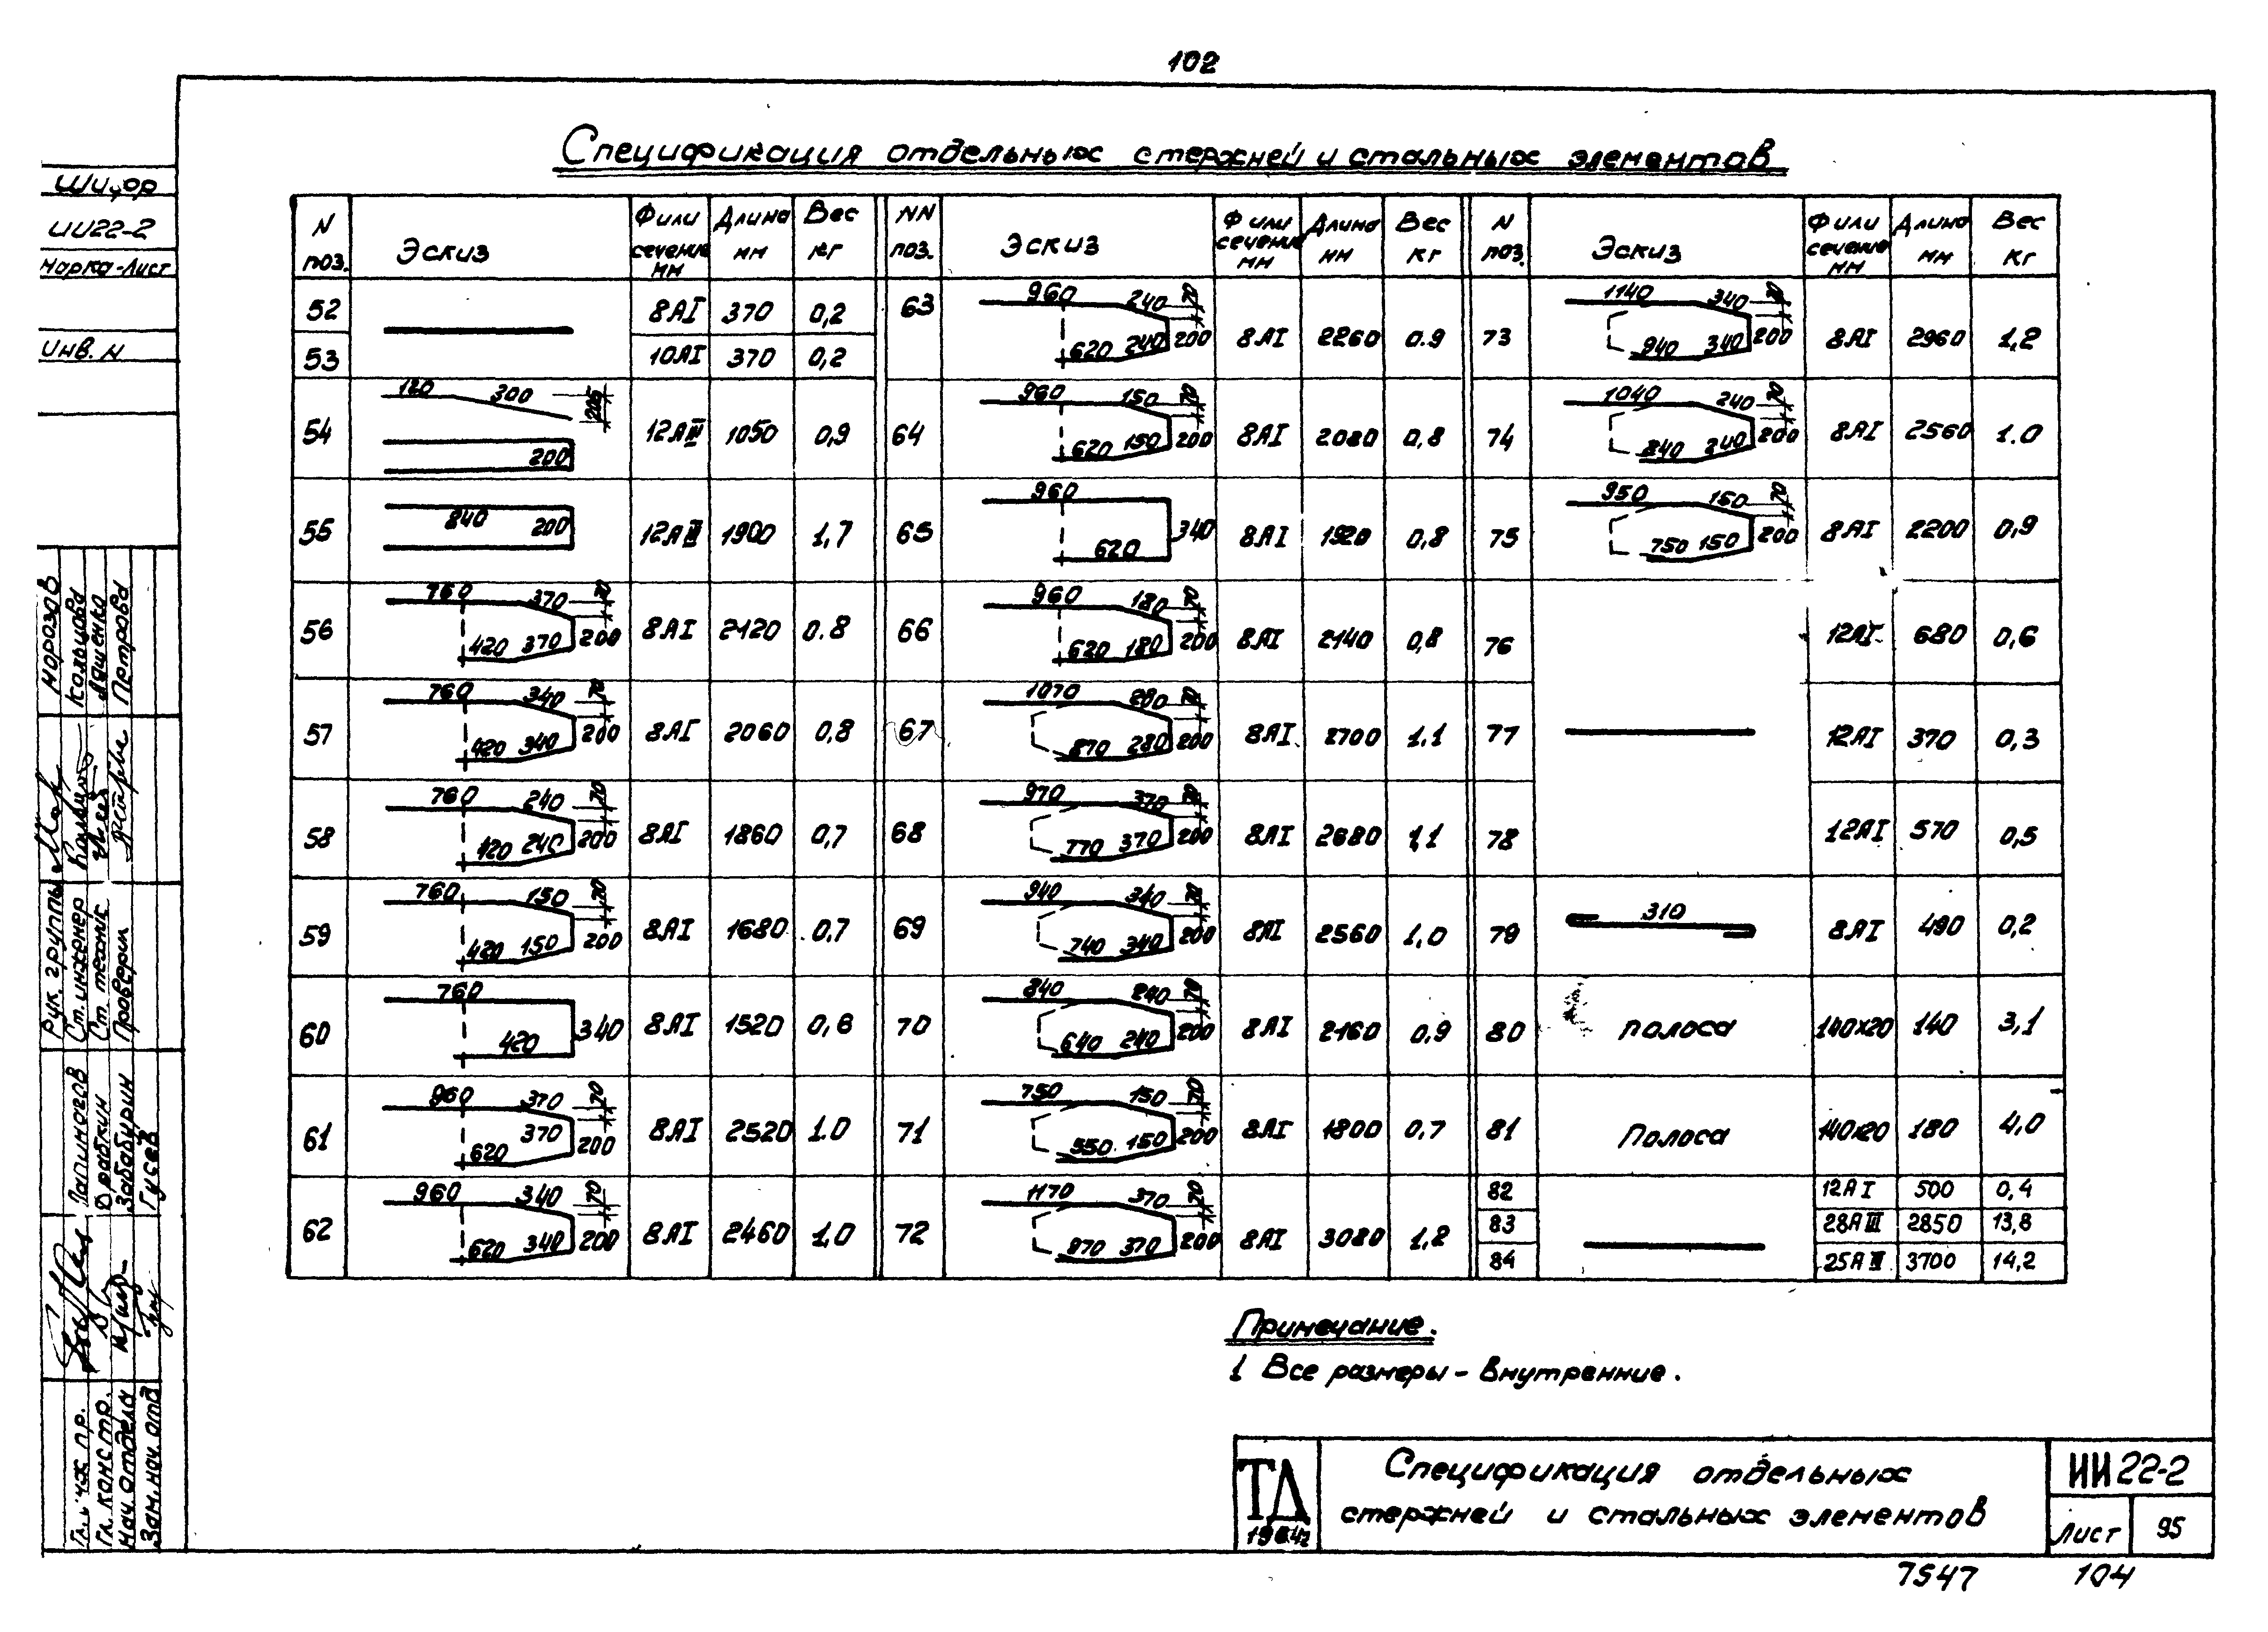 102
Спецификация отдельных стержней и стальных элементов
N поз. Эскиз Ф или сечение мм Длина мм Вес кг
NN поз. Эскиз Ф или сечение мм Длина мм Вес кг
N поз. Эскиз Ф или сечение мм Длина мм Вес кг
52 8АI 370 0,2
53 10АI 370 0,2
54 120 300 205 200 12АIII 1050 0,9
55 840 200 12АIII 1900 1,7
56 760 370 70 420 370 200 8АI 2120 0.8
57 760 340 70 420 340 200 8АI 2060 0,8
58 760 240 70 420 240 200 8АI 1860 0,7
59 760 150 70 420 150 200 8АI 1680 0,7
60 760 420 340 8АI 1520 0,6
61 960 370 70 620 370 200 8АI 2520 1.0
62 960 340 70 620 340 200 8АI 2460 1,0
63 960 240 70 620 240 200 8АI 2260 0.9
64 960 150 70 620 150 200 8АI 2080 0,8
65 960 620 340 8АI 1920 0,8
66 960 180 70 620 180 200 8АI 2140 0,8
67 1070 280 70 870 280 200 8АI 2700 1.1
68 970 370 70 770 370 200 8АI 2680 1,1
69 940 340 70 740 340 200 8АI 2560 1,0
70 840 240 70 640 240 200 8АI 2160 0,9
71 750 150 70 550 150 200 8АI 1800 0,7
72 1170 370 70 970 370 200 8АI 3080 1,2
73 1140 340 70 940 340 200 8АI 2960 1,2
74 1040 240 70 840 240 200 8АI 2560 1.0
75 950 150 70 750 150 200 8АI 2200 0,9
76 12АI 680 0,6
77 12АI 370 0,3
78 12АI 570 0,5
79 310 8АI 490 0,2
80 полоса 140х20 140 3,1
81 Полоса 140х20 180 4,0
82 12АI 500 0,4
83 28АIII 2850 13,8
84 25АIII 3700 14,2
Примечание.
1 Все размеры - внутренние.
ТД
Спецификация отдельных
стержней и стальных элементов
ИИ22-2
Лист 95
7547 104
Шифр
ИИ22-2
Марка-Лист
Инв. N
Морозов
Кольцова
Ляшенко
Петрова
Рук. группы
Ст. инженер
Ст. техник
Проверил
Драбкин
Забабурин
Гусев
Гл. инж. пр.
Гл. констр.
Нач. отдела
Зам. нач. отд